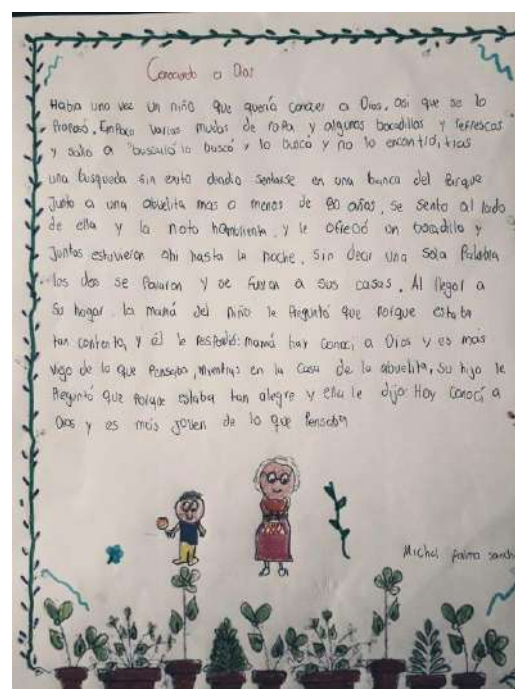 Conociendo a Dios
Habia una vez un niño que quería conocer a Dios, asi que se lo
Propusó. Empaco varias mudas de ropa y algunos bocadillos y refrescos
y salio a "buscalo" lo buscó y lo busco y no lo encontró, tras
una busqueda sin exito sentarse en una banca del Parque
Junto a una abuelita mas o menos de 80 años, se sento al lado
de ella y la noto hambrienta, y le ofreció un bocadillo y
Juntos estuvieron ahi hasta la noche, sin decir una sola Palabra
los dos se Pararon y se fueron a sus casas. Al llegar a
Su hogar la mamá del niño le Preguntó que Porque estaba
tan contento, y él le respondió: mamá hoy conoci a Dios y es más
viejo de lo que Pensaba, mientras en la Casa de la abuelita, su hijo le
Preguntó que Porque estaba tan alegre y ella le dijo: Hoy Conocí a
Dios y es más joven de lo que Pensaba
Michel Palma